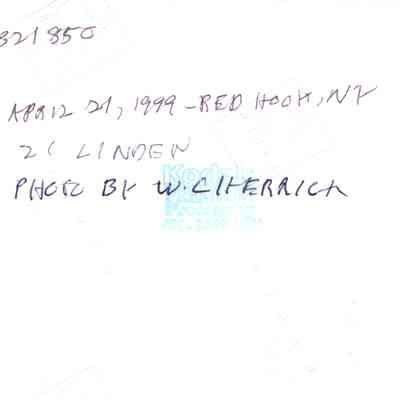 321850
APRIL 21, 1999 - RED HOOK, NY
21 LINDEN
PHOTO BY W. CHERRICK
Kodak